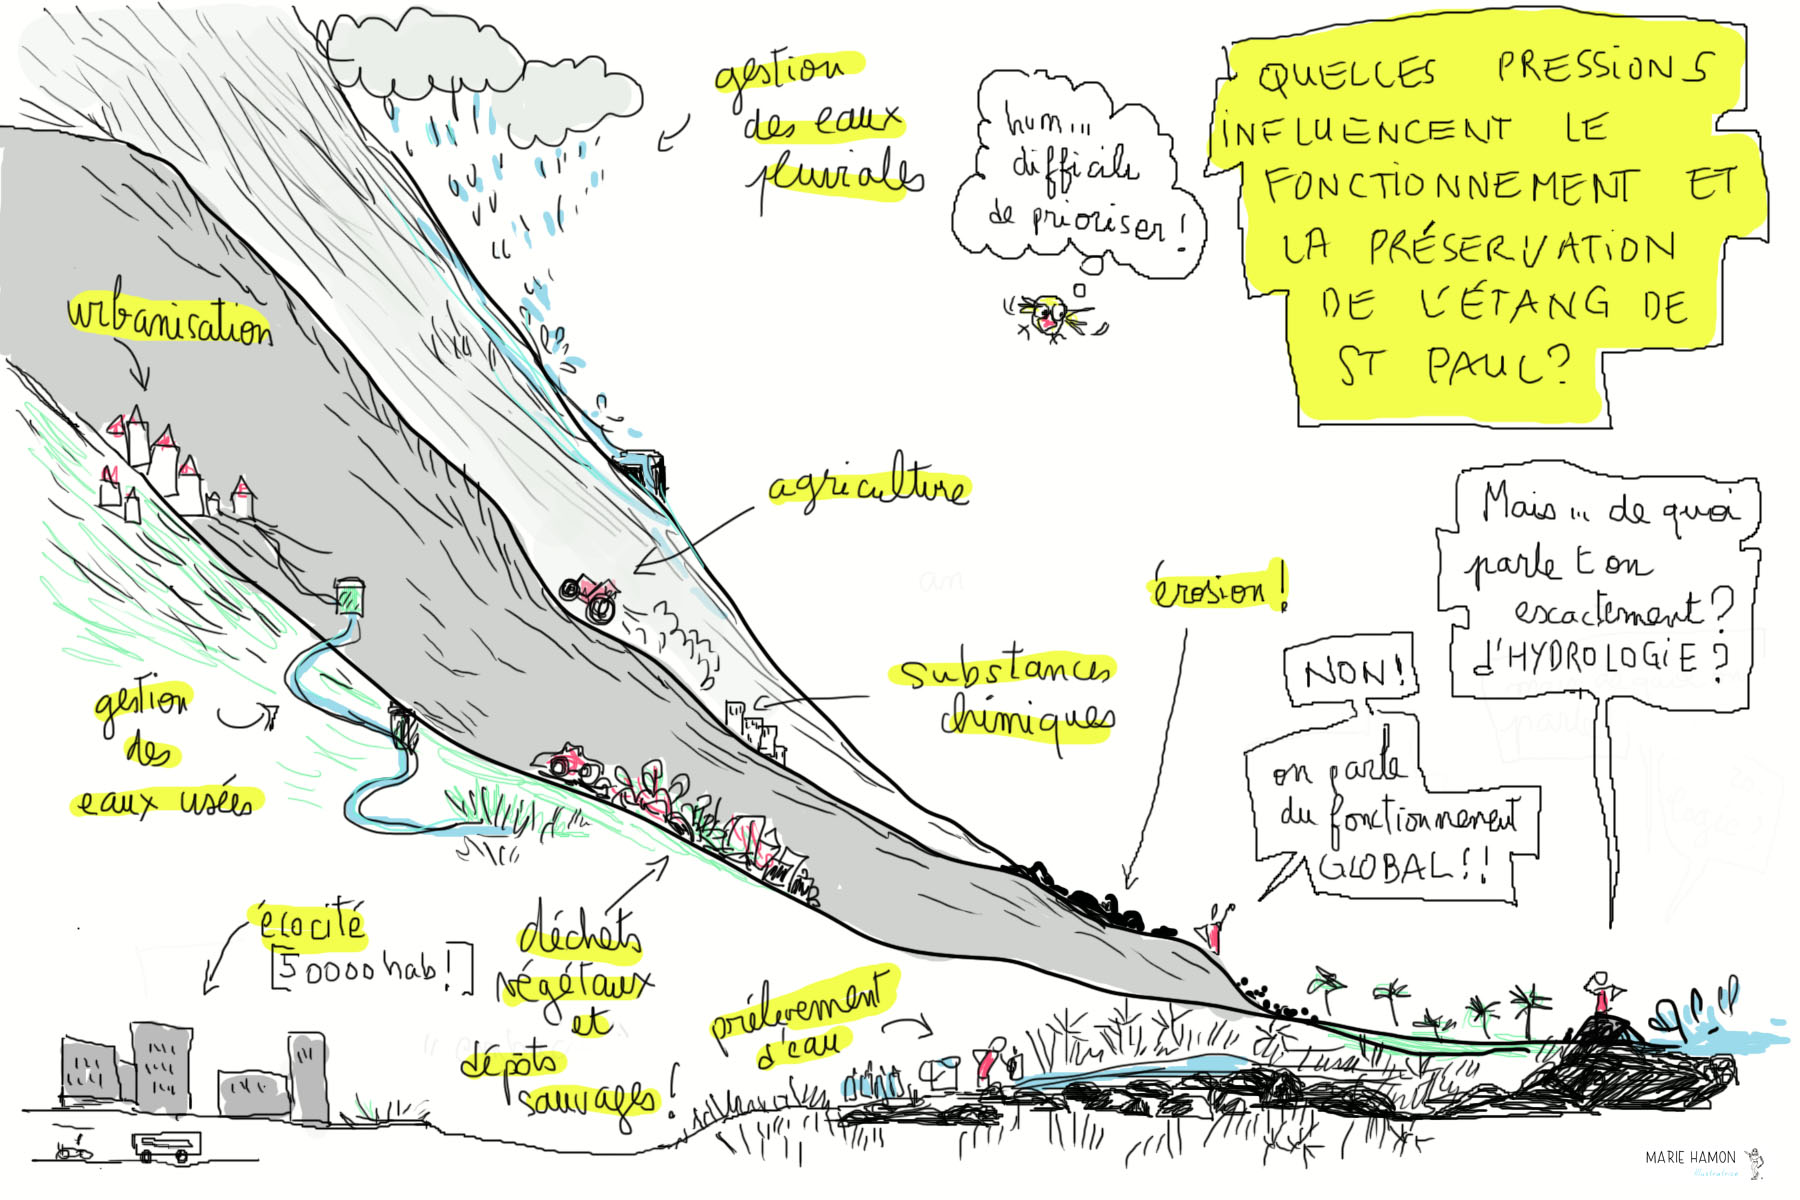 QUELLES PRESSIONS
INFLUENCENT LE
FONCTIONNEMENT ET
LA PRÉSERVATION
DE L'ÉTANG DE
ST PAUL?
gestion
des eaux
pluviales
hum...
difficile
de prioriser!
urbanisation
agriculture
érosion!
substances
chimiques
Mais... de quoi
parle t on
exactement?
d'HYDROLOGIE?
NON!
on parle
du fonctionnement
GLOBAL!!
gestion
des
eaux usées
écocité
[50000 hab!]
déchéts
végétaux
et
dépôts
sauvages!
prélèvement
d'eau
MARIE HAMON
illustratrice